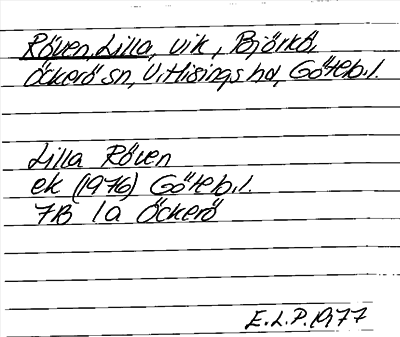 Röven, Lilla, vik, Björkö,
Öckerö sn, V. Hisings hd, Göteb. l.
Lilla Röven
ek (1976) Göteb. l.
7B 1a Öckerö
E.L.P. 1977